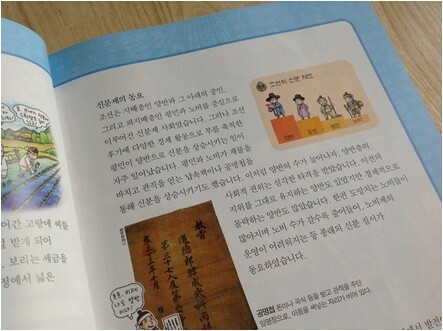 신분제의 동요
조선은 지배층인 양반과 그 아래의 중인,
그리고 피지배층인 평민과 노비를 중심으로
이루어진 신분제 사회였습니다. 그러나 조선
후기에 다양한 경제 활동으로 부를 축적한
평민이 양반으로 신분을 상승시키는 일이
자주 일어났습니다. 평민과 노비가 재물을
바치고 관직을 얻는 납속책이나 공명첩을
통해 신분을 상승시키기도 했습니다. 이처럼 양반의 수가 늘어나자, 양반층의
사회적 권위는 심각한 타격을 받았습니다. 이전의
지위를 그대로 유지하는 양반도 있었지만 경제적으로
몰락하는 양반도 많았습니다. 한편 도망치는 노비들이
많아지며 노비 수가 갈수록 줄어들어, 노비제의
운영이 어려워지는 등 종래의 신분 질서가
동요하였습니다.
조선의 신분 질서
양반
중인
평민
천민
어간 고랑에 씨를
받게 되어
보리는 세금을
정에서 넓은
공명첩 돈이나 곡식 등을 받고 관직을 주던
임명장으로, 이름을 써넣는 자리가 비어 있다.